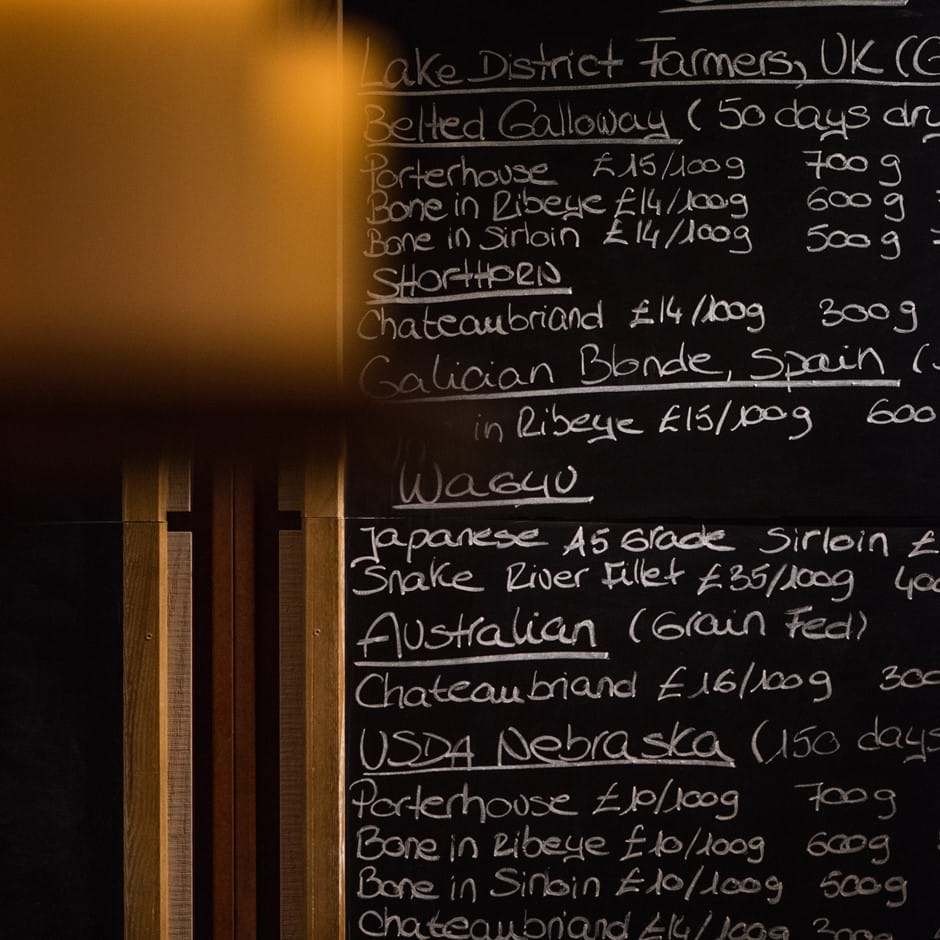 Lake District Farmers, UK (G
Belted Galloway (50 days dry
Porterhouse £15/100g 700g
Bone in Ribeye £14/100g 600g
Bone in Sirloin £14/100g 500g
SHORTHORN
Chateaubriand £14/100g 300g
Galician Blonde, Spain (
in Ribeye £15/100g 600
WAGYU
Japanese A5 Grade Sirloin £
Snake River Fillet £35/100g 400
Australian (Grain Fed)
Chateaubriand £16/100g 300
USDA Nebraska (150 days
Porterhouse £10/100g 700g
Bone in Ribeye £10/100g 600g
Bone in Sirloin £10/100g 500g
Chateaubriand £14/100g 300g